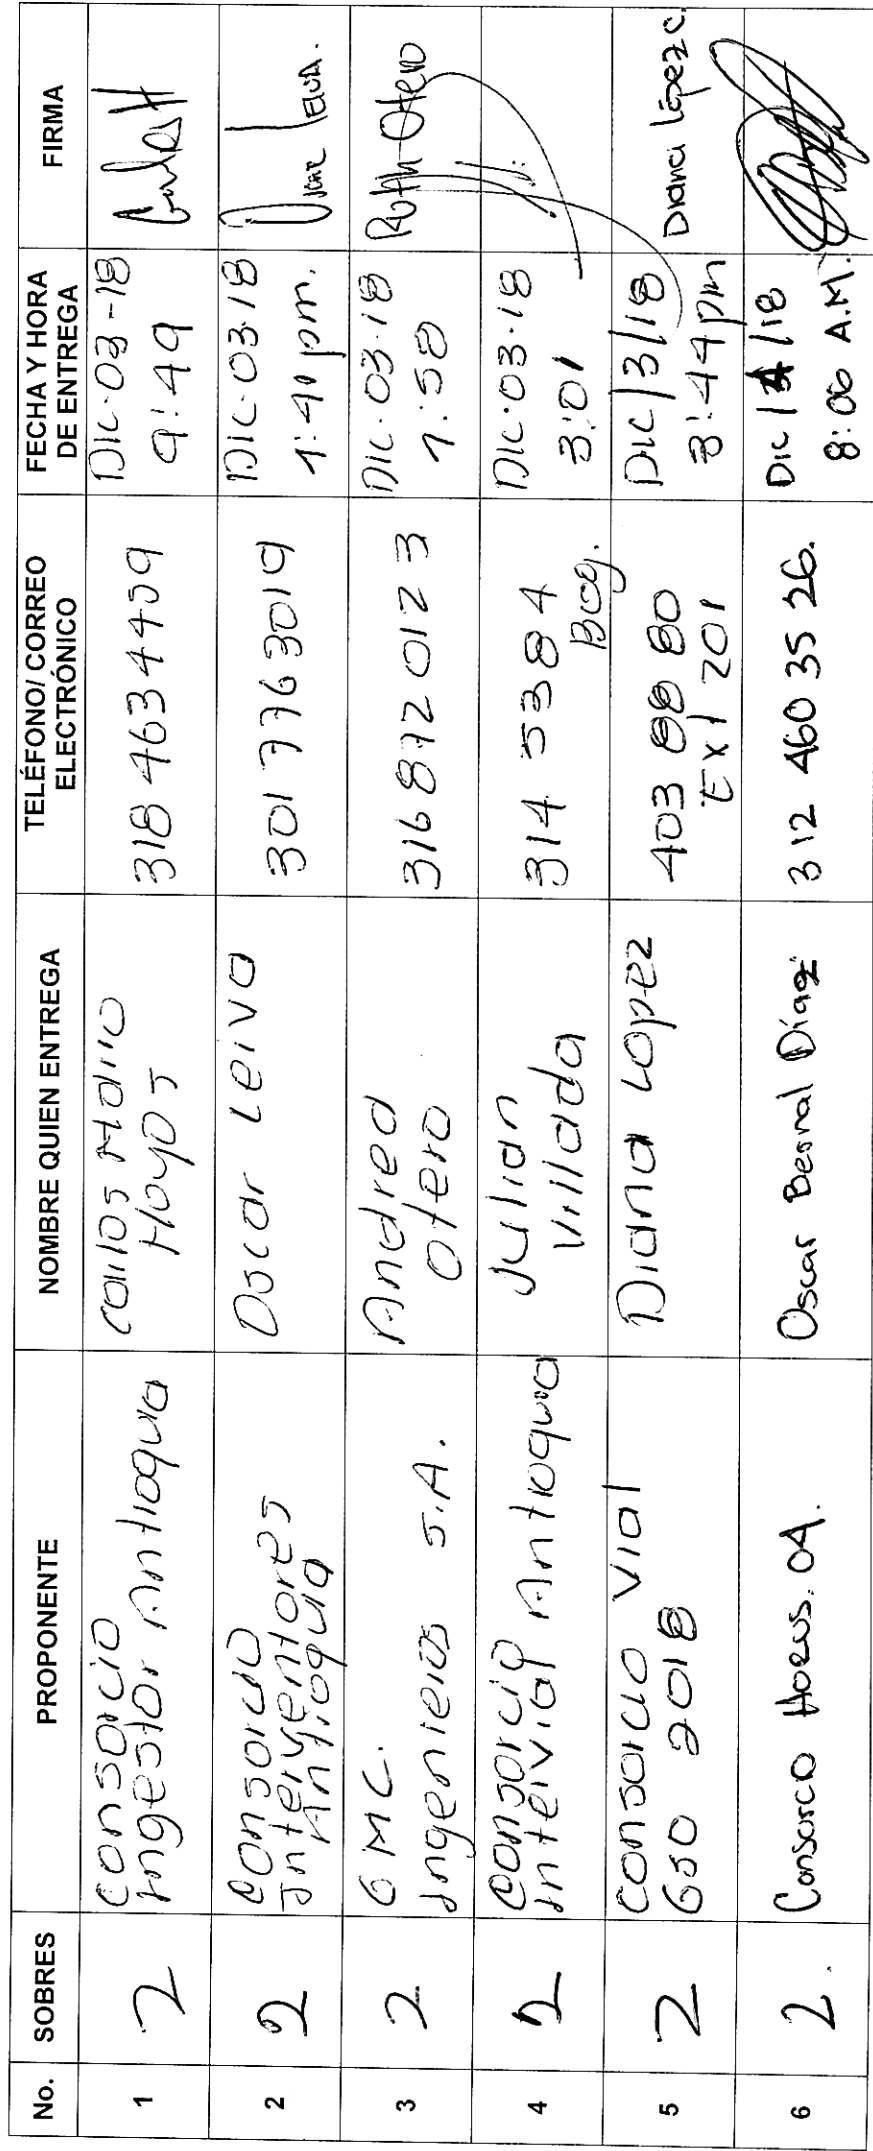 No. SOBRES PROPONENTE NOMBRE QUIEN ENTREGA TELÉFONO/ CORREO ELECTRÓNICO FECHA Y HORA DE ENTREGA FIRMA
1 2 Consorcio Ingestor Antioquia Carlos Mario Hoyos 318 4634459 Dic-03-18 9:49
2 2 Consorcio Interventores Antioquia Oscar Leiva 301 7763019 Dic-03-18 1:40 pm. Oscar Leiva.
3 2 GMC Ingenieros S.A. Andrea Otero 316 8720123 Dic-03-18 1:50 Ruth Otero
4 2 Consorcio Intervial Antioquia Julian Villada 314 5384 Bog. Dic-03-18 3:01
5 2 Consorcio Vial GSO 2018 Diana Lopez 403 88 80 Ext 201 Dic/3/18 3:44 pm Diana López C.
6 2. Consorcio Horus. 04. Oscar Bernal Díaz 312 460 35 26. Dic/4/18 8:06 A.M.